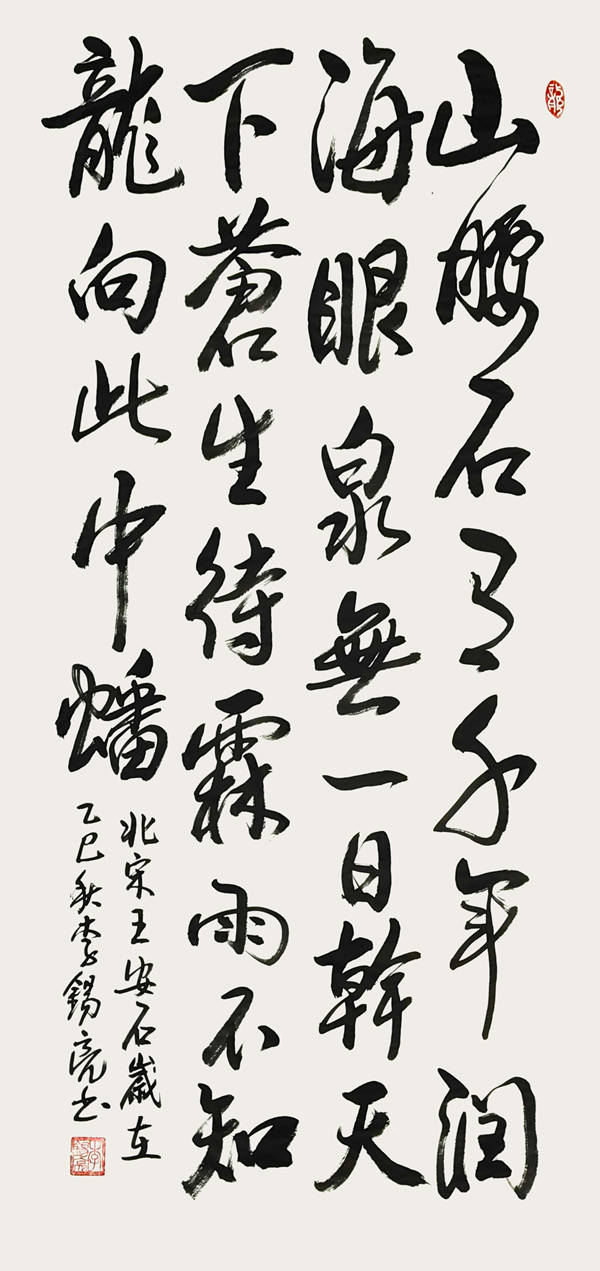 山腰石有千年潤
海眼泉無一日幹天
下蒼生待霖雨不知
龍向此中蟠
北宋王安石歲在
乙巳秋李錫亮書